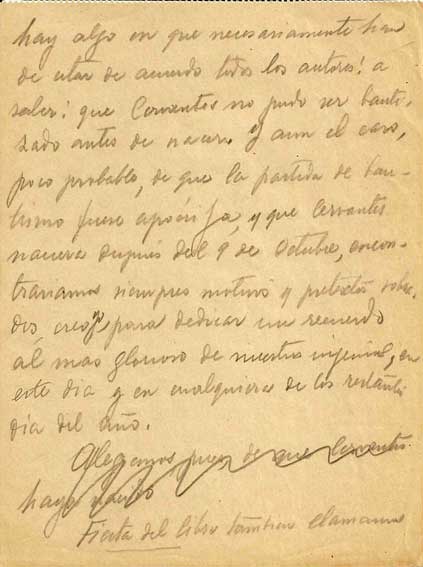 hay algo en que necesariamente han
de estar de acuerdo todos los autores: a
saber: que Cervantes no pudo ser bauti-
zado antes de nacer. Y aun el caso,
poco probable, de que la partida de bau-
tismo fuese apócrifa, y que Cervantes
naciera después del 9 de Octubre, encon-
trariamos siempre motivos y pretextos sobra-
dos, creo yo para dedicar un recuerdo
al mas glorioso de nuestros ingenios, en
este dia y en cualquiera de los restantes
dia del año.
Alegremos pues de que Cervantes
haya nacido
Fiesta del libro tambien llamamos